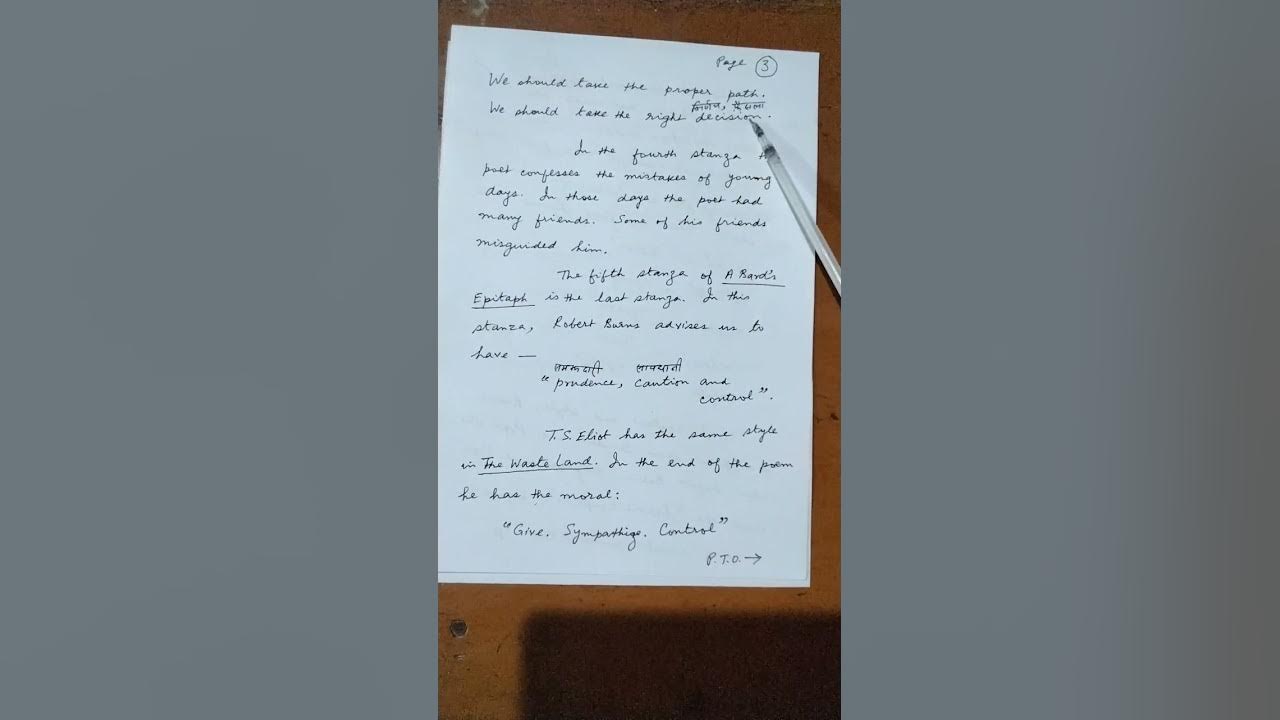 Page 3
We should take the proper path.
निर्णय, फैसला
We should take the right decision.
In the fourth stanza
poet confesses the mistakes of young
days. In those days the poet had
many friends. Some of his friends
misguided him.
The fifth stanza of A Bard's
Epitaph is the last stanza. In this
stanza, Robert Burns advises us to
have —
समझदारी सावधानी
"prudence, caution and
control".
T.S. Eliot has the same style
in The Waste Land. In the end of the poem
he has the moral:
"Give. Sympathize. Control"
P.T.O. →